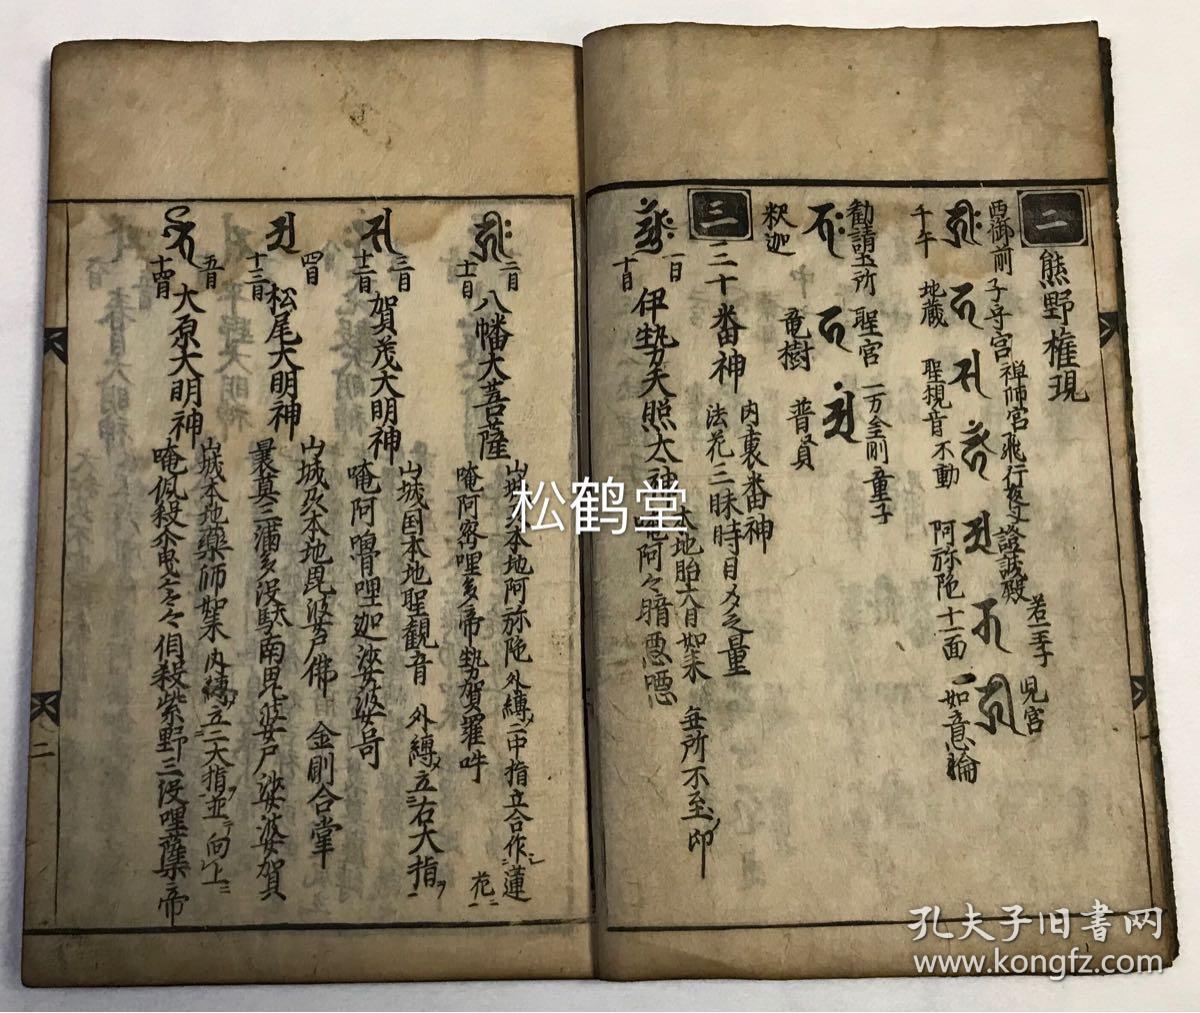 二 熊野権現
西御前 子守宮 禅師宮 飛行夜叉 證誠殿 若王子 児宮
千手 地蔵 聖観音 不動 阿弥陀 十一面 如意輪
勧請五所 聖宮 一万金剛童子
釈迦 竜樹 普賢
三 三十番神
内裏番神
法花三昧時自
一日
十日
伊勢天照太神
本地胎大日如来 無所不至印
唵阿々暗悪
二日
十一日
八幡大菩薩
本地阿弥陀 外縛二中指立合作蓮花
三日
十二日
賀茂大明神
山城国本地聖観音 外縛立右大指
唵阿嚕哩迦娑婆
四日
十三日
松尾大明神
山城本地毘婆尸佛 金剛合掌
曩莫三満多没駄南毘婆尸娑婆賀
五日
十四日
大原大明神
山城本地藥師如来 内縛立二大指並向上
二
松鹤堂
孔夫子旧書网
www.kongfz.com